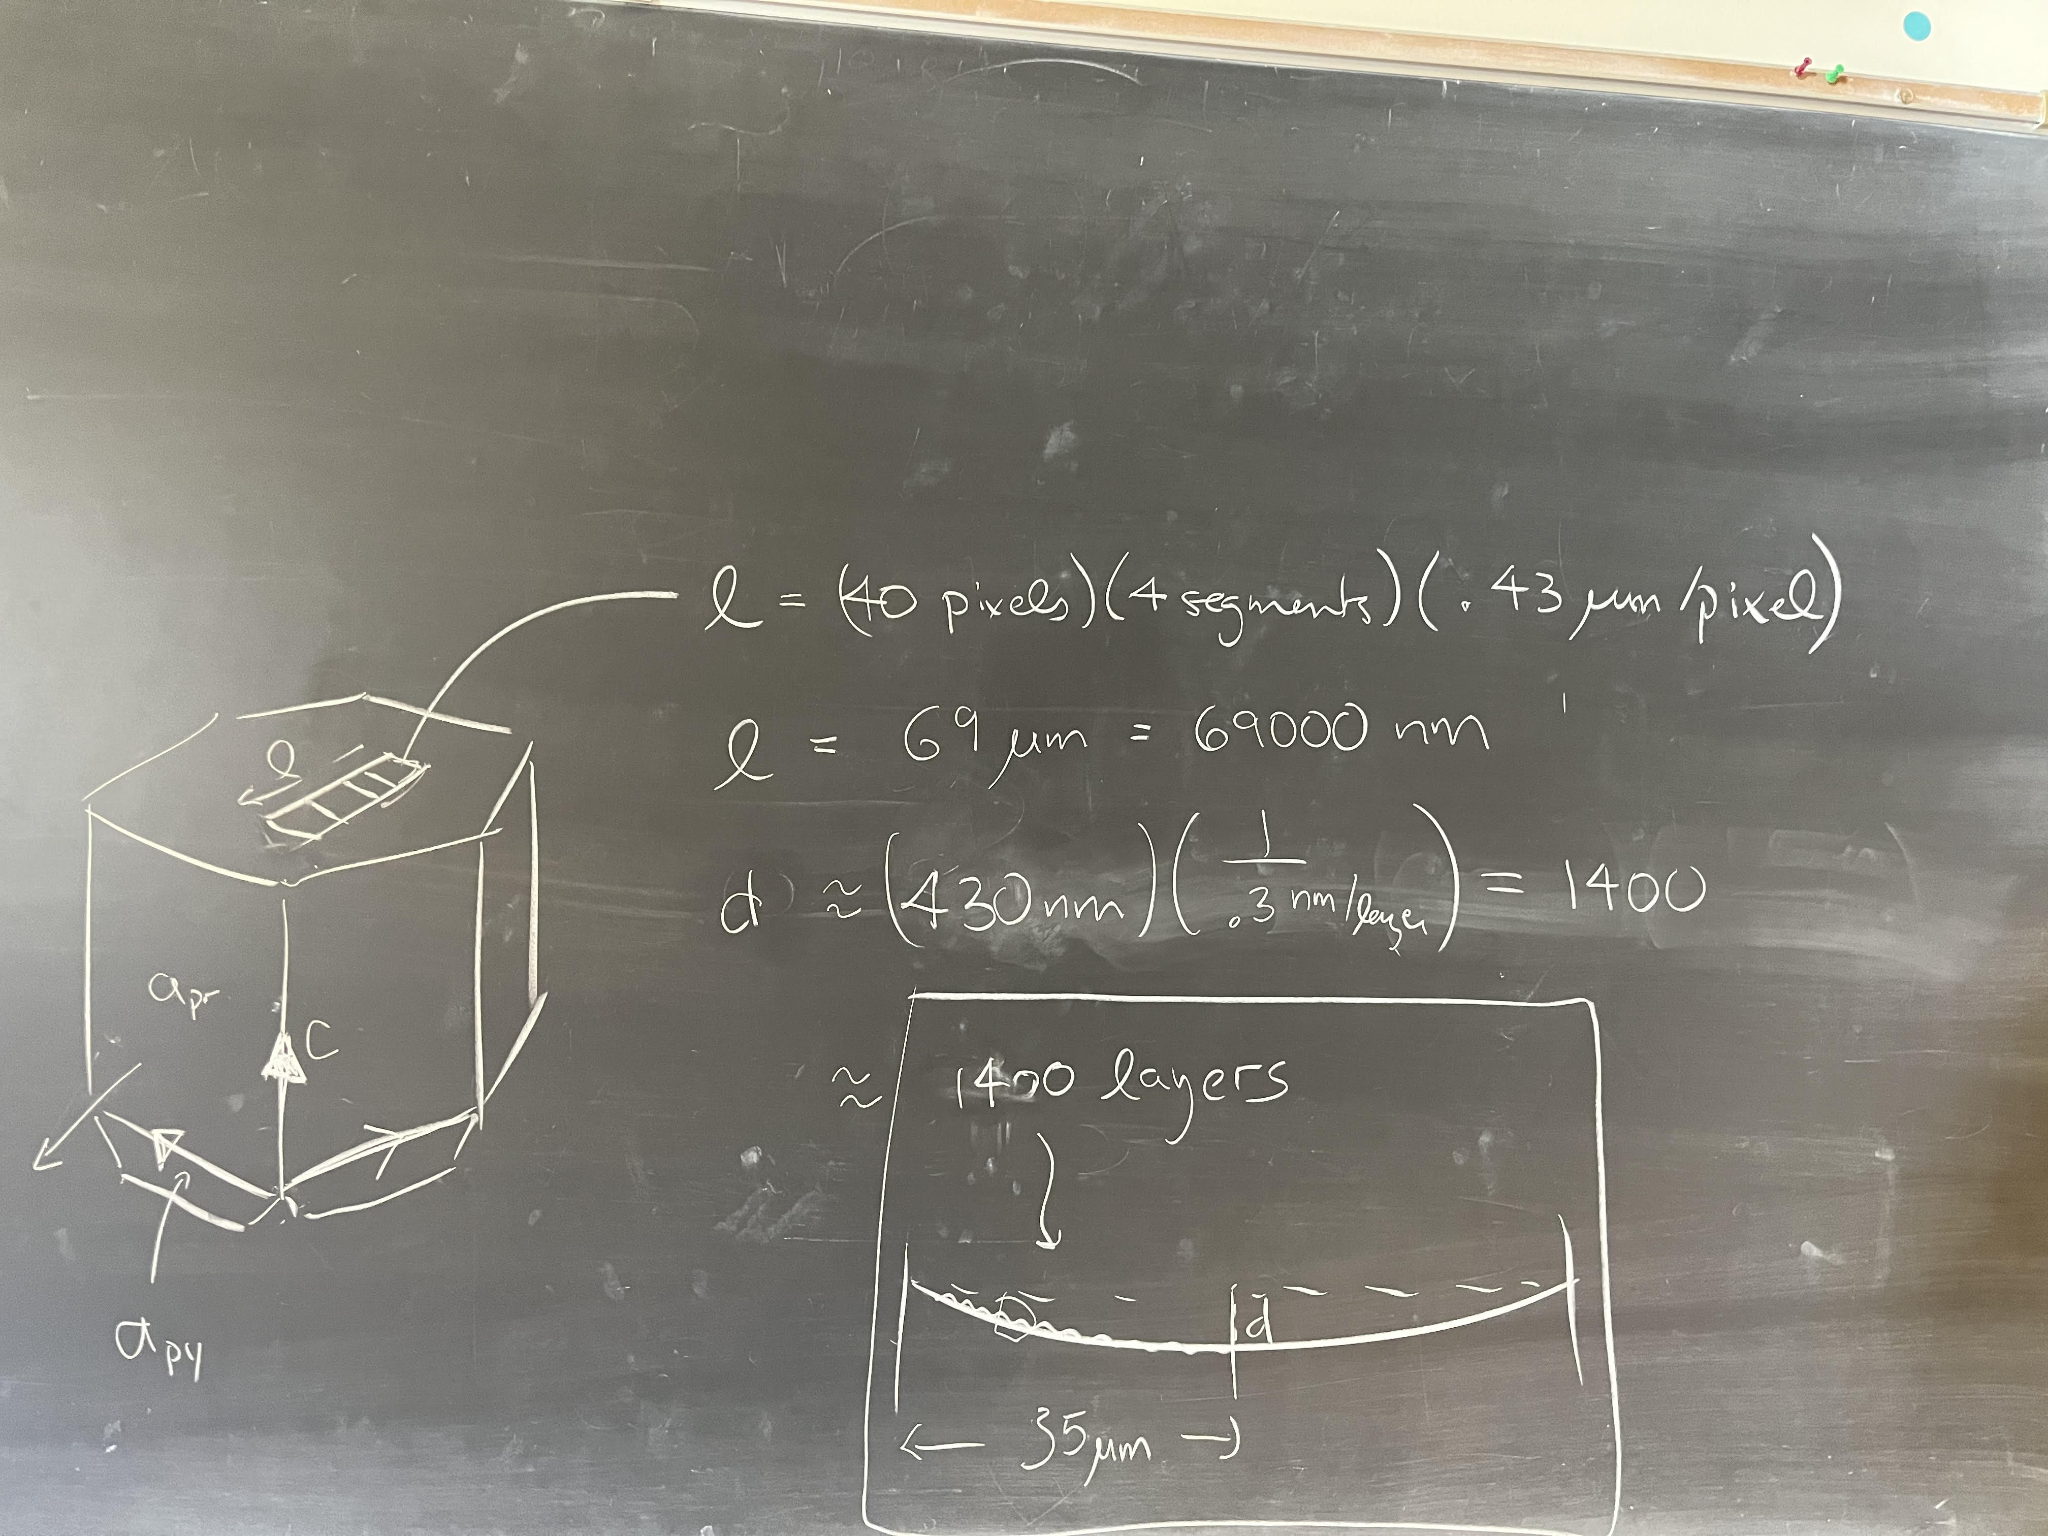 l = (40 pixels)(4 segments)(.43 μm/pixel)
l = 69 μm = 69000 nm
d ≈ (430 nm)(1/.3 nm/layer) = 1400
≈ 1400 layers
d
← 35 μm →
l
apr
C
apy